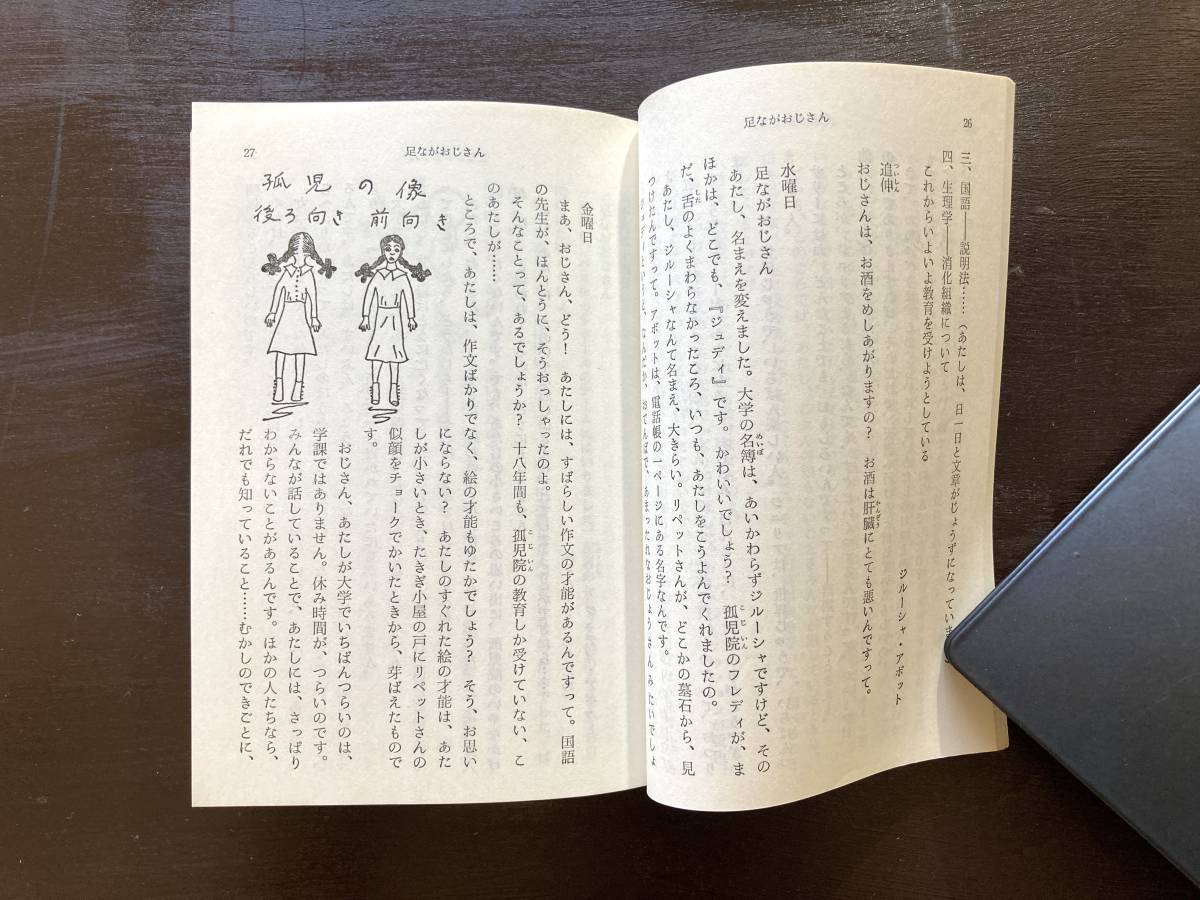 26
足ながおじさん
三、国語――説明法……(あたしは、日一日と文章がじょうずになっていま
四、生理学――消化組織について
これからいよいよ教育を受けようとしている
ジルーシャ・アボット
追伸
おじさんは、お酒をめしあがりますの? お酒は肝臓にとても悪いんですって。
水曜日
足ながおじさん
あたし、名まえを変えました。大学の名簿は、あいかわらずジルーシャですけど、その
ほかは、どこでも、『ジュディ』です。かわいいでしょう? 孤児院のフレディが、ま
だ、舌のよくまわらなかったころ、いつも、あたしをこうよんでくれましたの。
あたし、ジルーシャなんて名まえ、大きらい。リペットさんが、どこかの墓石から、見
つけたんですって。アボットは、電話帳の一ページにある名字なんです。
なんだか、おてんばで、あまったれなおじょうさんみたいでしょ
足ながおじさん
27
金曜日
まあ、おじさん、どう! あたしには、すばらしい作文の才能があるんですって。国語
の先生が、ほんとうに、そうおっしゃったのよ。
そんなことって、あるでしょうか? 十八年間も、孤児院の教育しか受けていない、こ
のあたしが……
ところで、あたしは、作文ばかりでなく、絵の才能もゆたかでしょう? そう、お思い
にならない? あたしのすぐれた絵の才能は、あた
しが小さいとき、たきぎ小屋の戸にリペットさんの
似顔をチョークでかいたときから、芽ばえたもので
す。
おじさん、あたしが大学でいちばんつらいのは、
学課ではありません。休み時間が、つらいのです。
みんなが話していることで、あたしには、さっぱり
わからないことがあるんです。ほかの人たちなら、
だれでも知っていること……むかしのできごとに、
孤児の像
後ろ向き 前向き